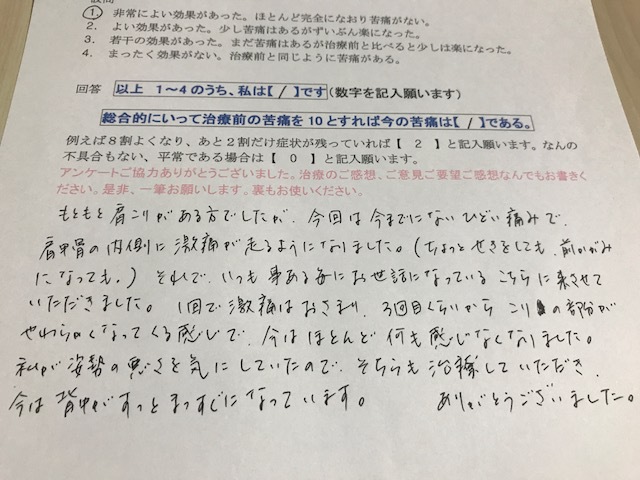 設問
1. 非常によい効果があった。ほとんど完全になおり苦痛がない。
2. よい効果があった。少し苦痛はあるがずいぶん楽になった。
3. 若干の効果があった。まだ苦痛はあるが治療前と比べると少しは楽になった。
4. まったく効果がない。治療前と同じように苦痛がある。
回答 以上 1～4のうち、私は【 1 】です(数字を記入願います)
総合的にいって治療前の苦痛を10とすれば今の苦痛は【 1 】である。
例えば8割よくなり、あと2割だけ症状が残っていれば【 2 】と記入願います。なんの
不具合もない、平常である場合は【 0 】と記入願います。
アンケートご協力ありがとうございました。治療のご感想、ご意見ご要望ご感想なんでもお書きく
ださい。是非、一筆お願いします。裏もお使いください。
もともと肩こりがある方でしたが、今回は今までにないひどい痛みで、
肩甲骨の内側に激痛が走るようになりました。(ちょっとせきをしても、前かがみ
になっても。) それで、いつも事ある毎にお世話になっているこちらに来させて
いただきました。 1回で激痛はおさまり、3回目くらいから こりの部分が
やわらかくなってくる感じで、今はほとんど何も感じなくなりました。
私が姿勢の悪さを気にしていたので、そちらも治療していただき、
今は背中がすっとまっすぐになっています。 ありがとうございました。